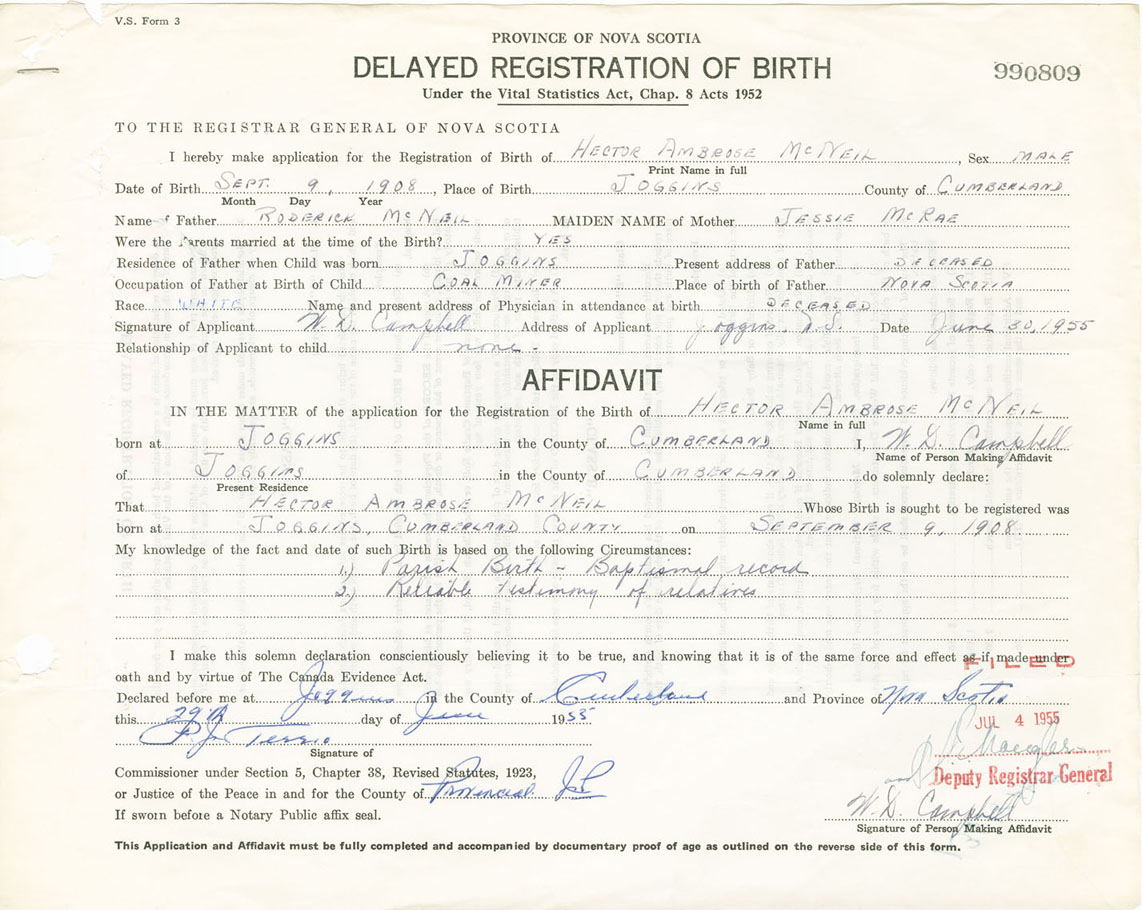 V.S. Form 3
PROVINCE OF NOVA SCOTIA
DELAYED REGISTRATION OF BIRTH
990809
Under the Vital Statistics Act, Chap. 8 Acts 1952
TO THE REGISTRAR GENERAL OF NOVA SCOTIA
I hereby make application for the Registration of Birth of HECTOR AMBROSE McNEIL, Sex MALE
Print Name in full
Date of Birth SEPT. 9, 1908, Place of Birth JOGGINS County of CUMBERLAND
Month Day Year
Name of Father RODERICK McNEIL MAIDEN NAME of Mother JESSIE McRAE
Were the Parents married at the time of the Birth? YES
Residence of Father when Child was born JOGGINS Present address of Father DECEASED
Occupation of Father at Birth of Child COAL MINER Place of birth of Father NOVA SCOTIA
Race WHITE Name and present address of Physician in attendance at birth DECEASED
Signature of Applicant W. D. Campbell Address of Applicant Joggins, N.S. Date June 30, 1955
Relationship of Applicant to child none -
AFFIDAVIT
IN THE MATTER of the application for the Registration of the Birth of HECTOR AMBROSE McNEIL
Name in full
born at JOGGINS in the County of CUMBERLAND I, W. D. Campbell
Name of Person Making Affidavit
of JOGGINS in the County of CUMBERLAND do solemnly declare:
Present Residence
That HECTOR AMBROSE McNEIL Whose Birth is sought to be registered was
born at JOGGINS, CUMBERLAND COUNTY on SEPTEMBER 9, 1908
My knowledge of the fact and date of such Birth is based on the following Circumstances:
1.) Parish Birth - Baptismal record
2.) Reliable testimony of relatives
I make this solemn declaration conscientiously believing it to be true, and knowing that it is of the same force and effect as if made under
FILED
oath and by virtue of The Canada Evidence Act.
Declared before me at Joggins in the County of Cumberland and Province of Nova Scotia
this 29th day of June 1955
JUL 4 1955
P. J. Terrio
Signature of
Commissioner under Section 5, Chapter 38, Revised Statutes, 1923,
Deputy Registrar General
or Justice of the Peace in and for the County of Provincial J P
W. D. Campbell
If sworn before a Notary Public affix seal.
Signature of Person Making Affidavit
This Application and Affidavit must be fully completed and accompanied by documentary proof of age as outlined on the reverse side of this form.